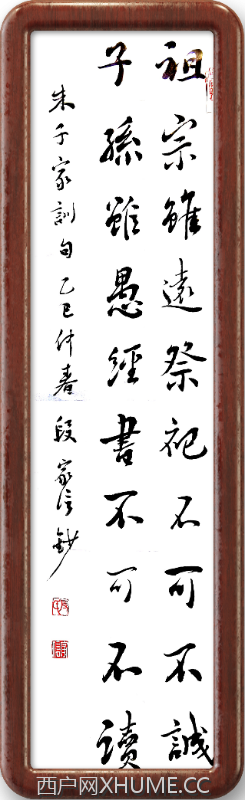 祖宗雖遠祭祀不可不誠
子孫雖愚經書不可不讀
朱子家訓句 乙巳仲春 段家信鈔
西户网XHUME.CC